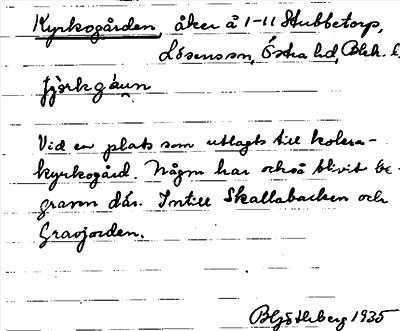 Kyrkogården, åker å 1-11 Stubbetorp,
Lösens sn, Östra hd, Blek. l.
Vid en plats som utlagts till kolera-
kyrkogård. Någon har också blivit be-
graven där. Intill Skallabacken och
Gravjorden.
B Göthberg 1935